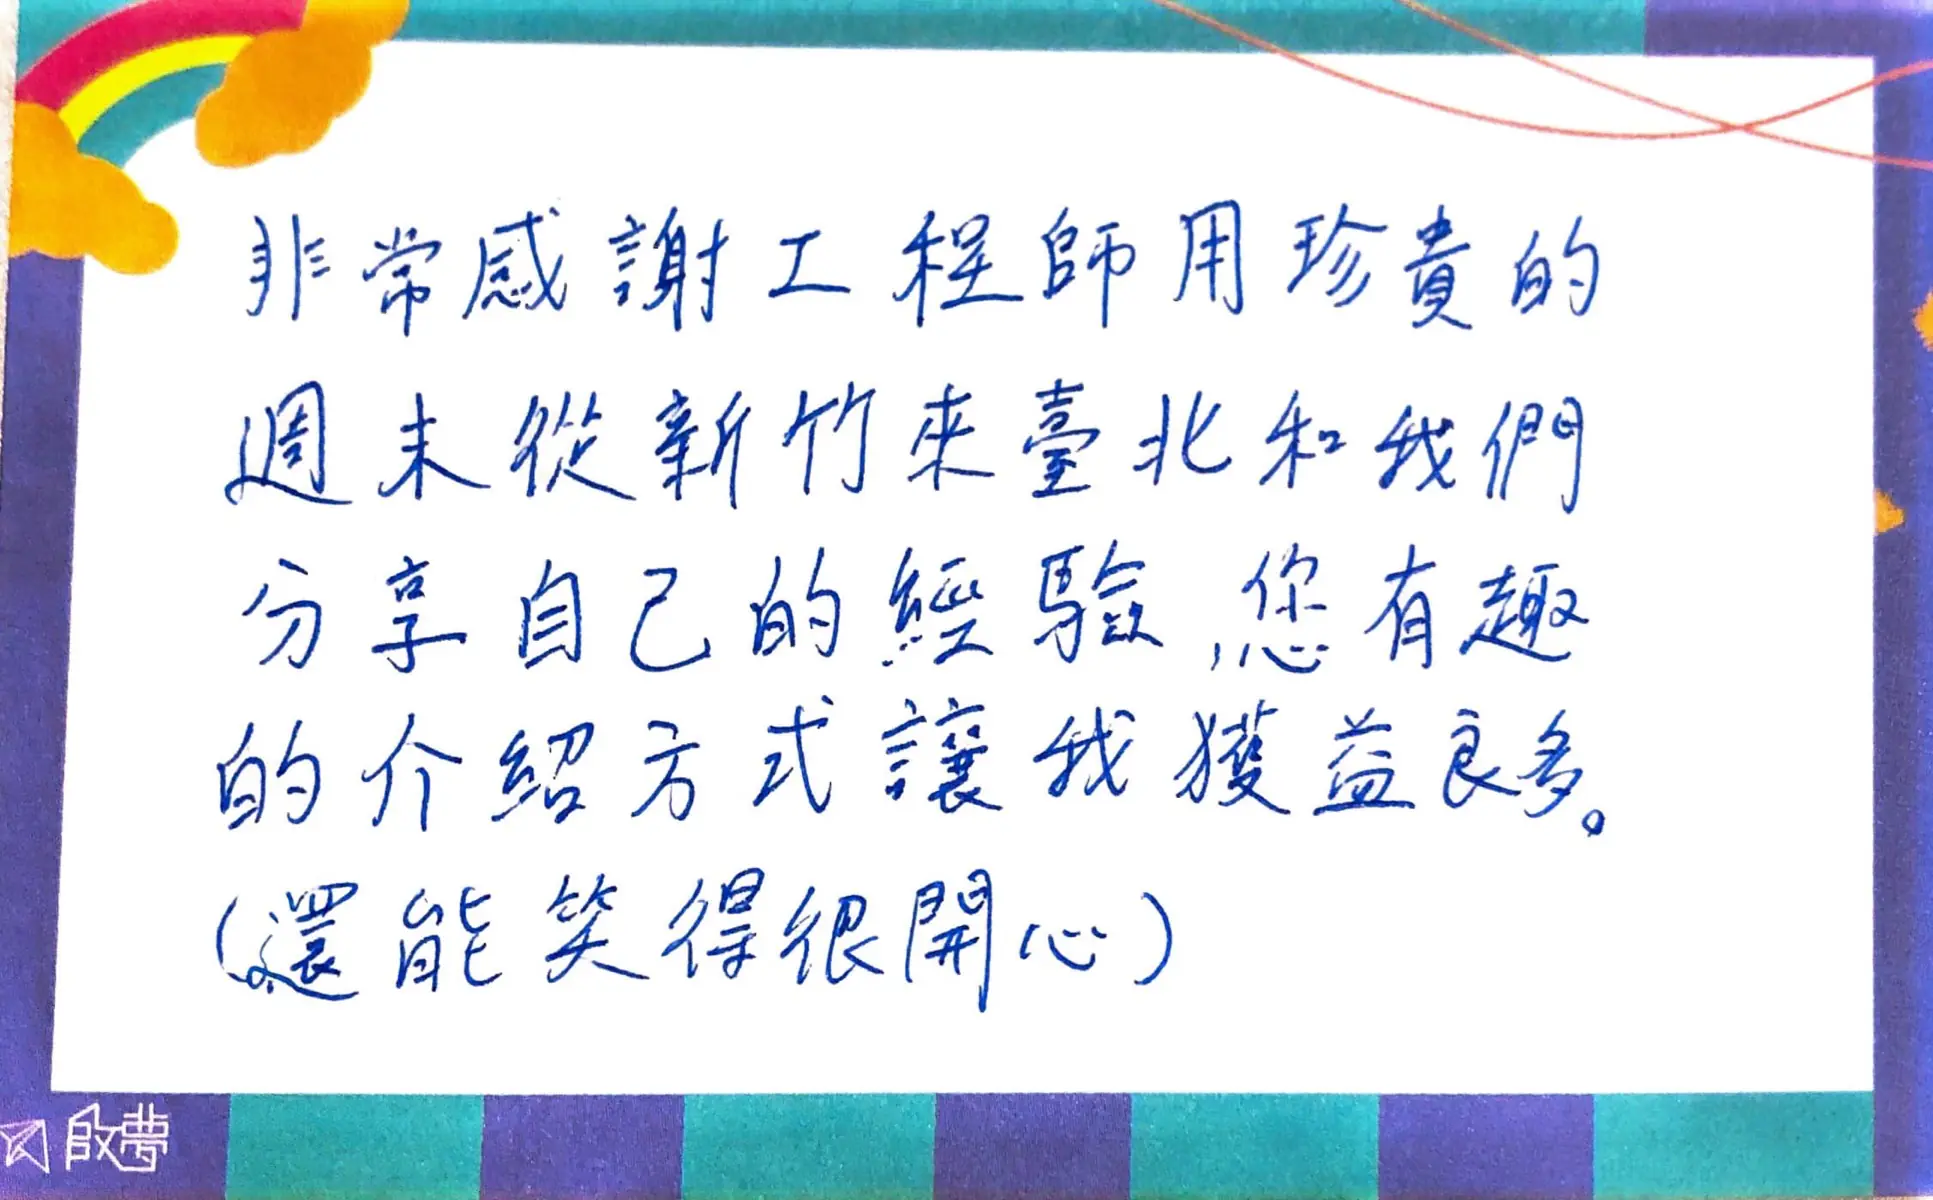 非常感謝工程師用珍貴的
週末從新竹來臺北和我們
分享自己的經驗,您有趣
的介紹方式讓我獲益良多。
(還能笑得很開心)
啟夢